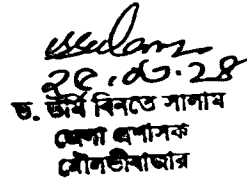 ২৫.৩.২৪
ড. উর্মি বিনতে সালাম
জেলা প্রশাসক
মৌলভীবাজার